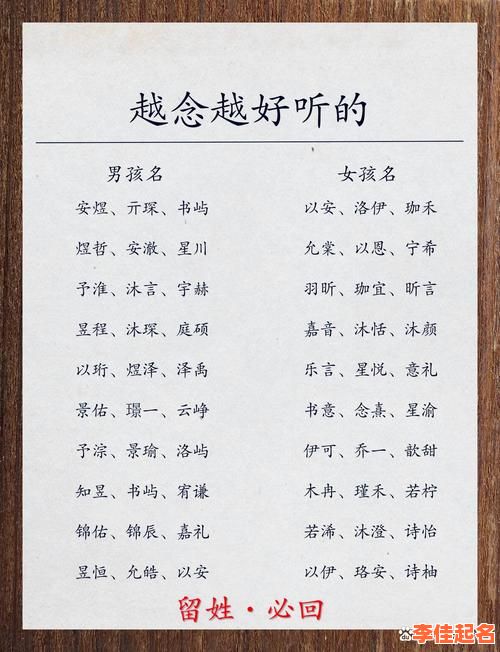 越念越好听的
男孩名 女孩名
安煜、亓琛、书屿 以安、洛伊、珈禾
煜哲、安澈、星川 允棠、以恩、宁希
予淮、沐言、宇赫 羽昕、珈宜、昕言
昱程、沐琛、庭硕 嘉音、沐恬、沐颜
以珩、煜泽、泽禹 乐言、星悦、意礼
景佑、璟一、云峥 书意、念熹、星渝
予淙、景瑜、洛屿 伊可、乔一、歆甜
知昱、书屿、宥谦 木冉、瑾禾、若柠
锦佑、锦辰、嘉礼 若浠、沐澄、诗怡
昱恒、允皓、以安 以伊、珞安、诗柚
留姓·必回
李佳起名